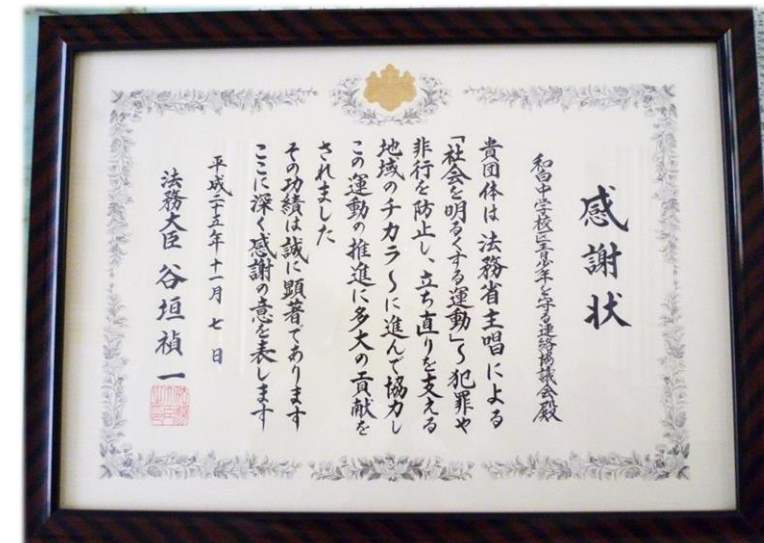 感謝状
和白中学校区青少年を守る連絡協議会殿
貴団体は法務省主唱による
「社会を明るくする運動」～犯罪や
非行を防止し、立ち直りを支える
地域のチカラ～に進んで協力し
この運動の推進に多大の貢献を
されました
その功績は誠に顕著であります
ここに深く感謝の意を表します
平成二十五年十一月七日
法務大臣 谷垣禎一